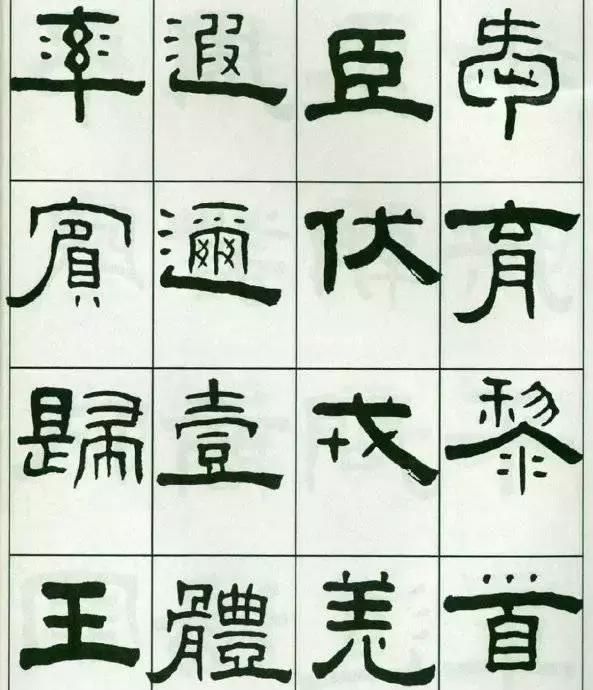 愛育黎首
臣伏戎羌
遐邇壹體
率賓歸王